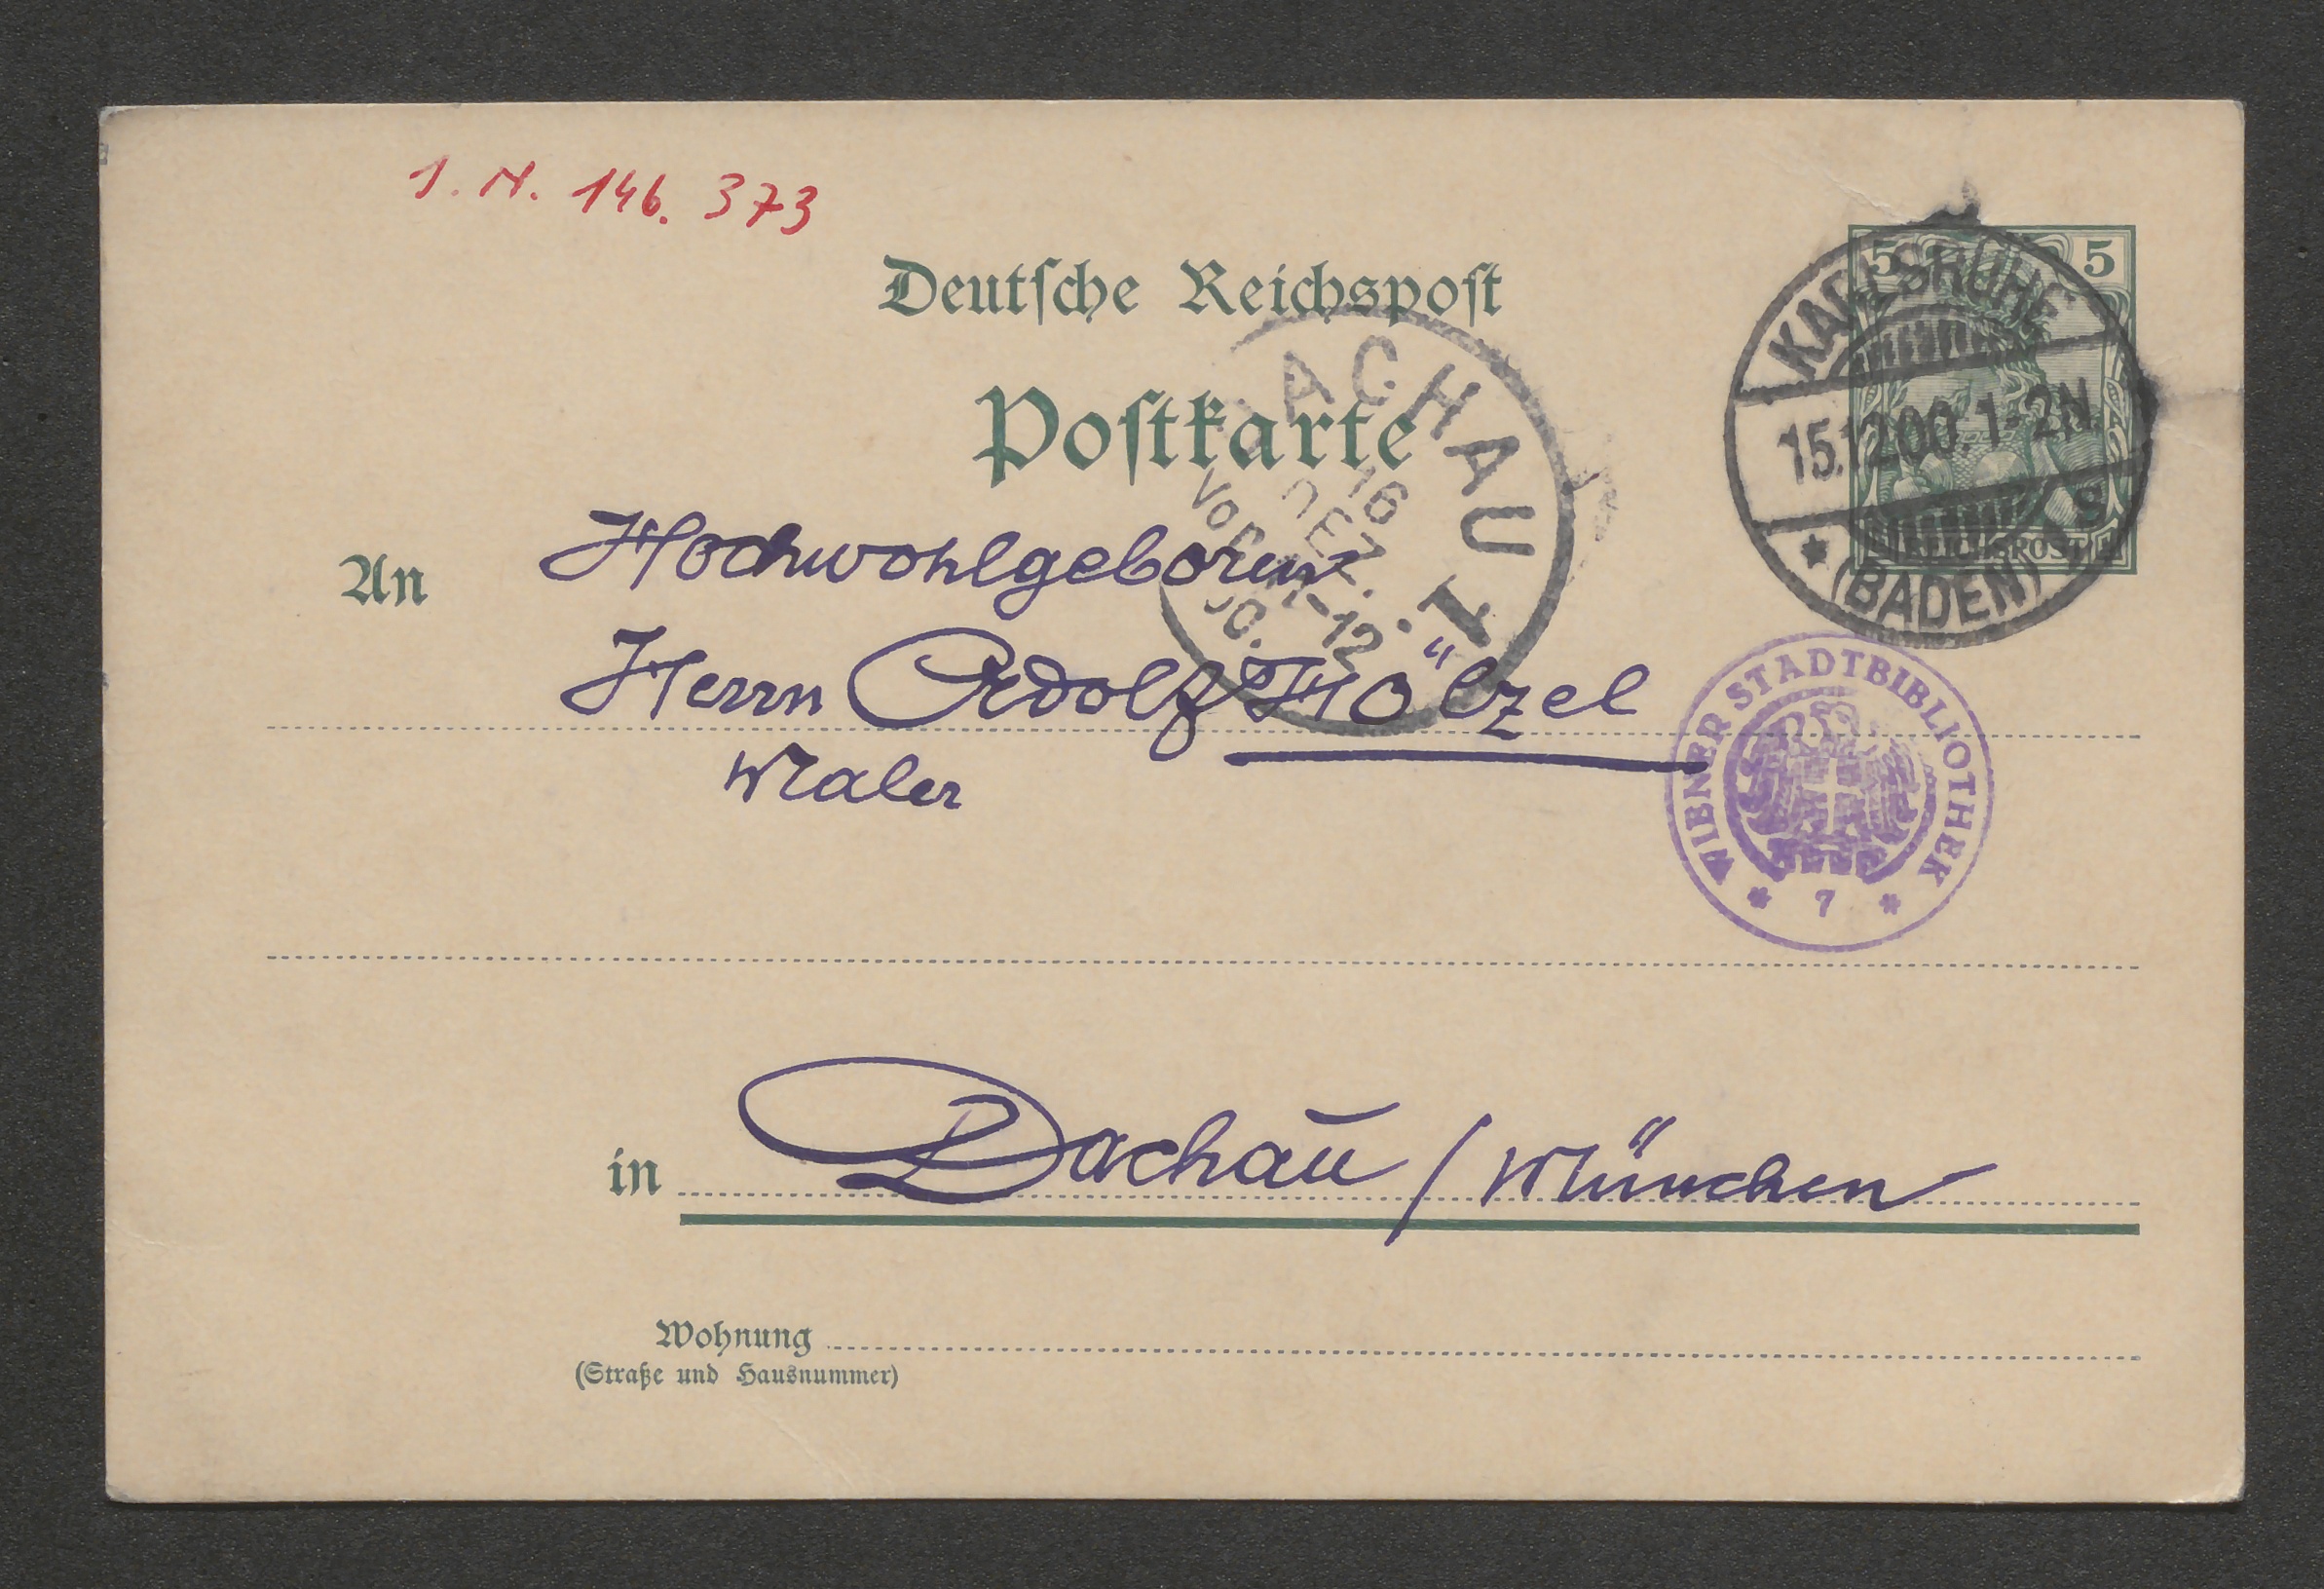 I. N. 146. 373
Deutsche Reichspost
Postkarte
5 5
REICHSPOST
KARLSRUHE
15.12.00. 1-2N.
(BADEN)
DACHAU I
16
DEZ.
Vorm. 11-12
00.
An Hochwohlgeboren
Herrn Adolf Hölzel
Maler
WIENER STADTBIBLIOTHEK
* 7 *
in Dachau / München
Wohnung
(Straße und Hausnummer)